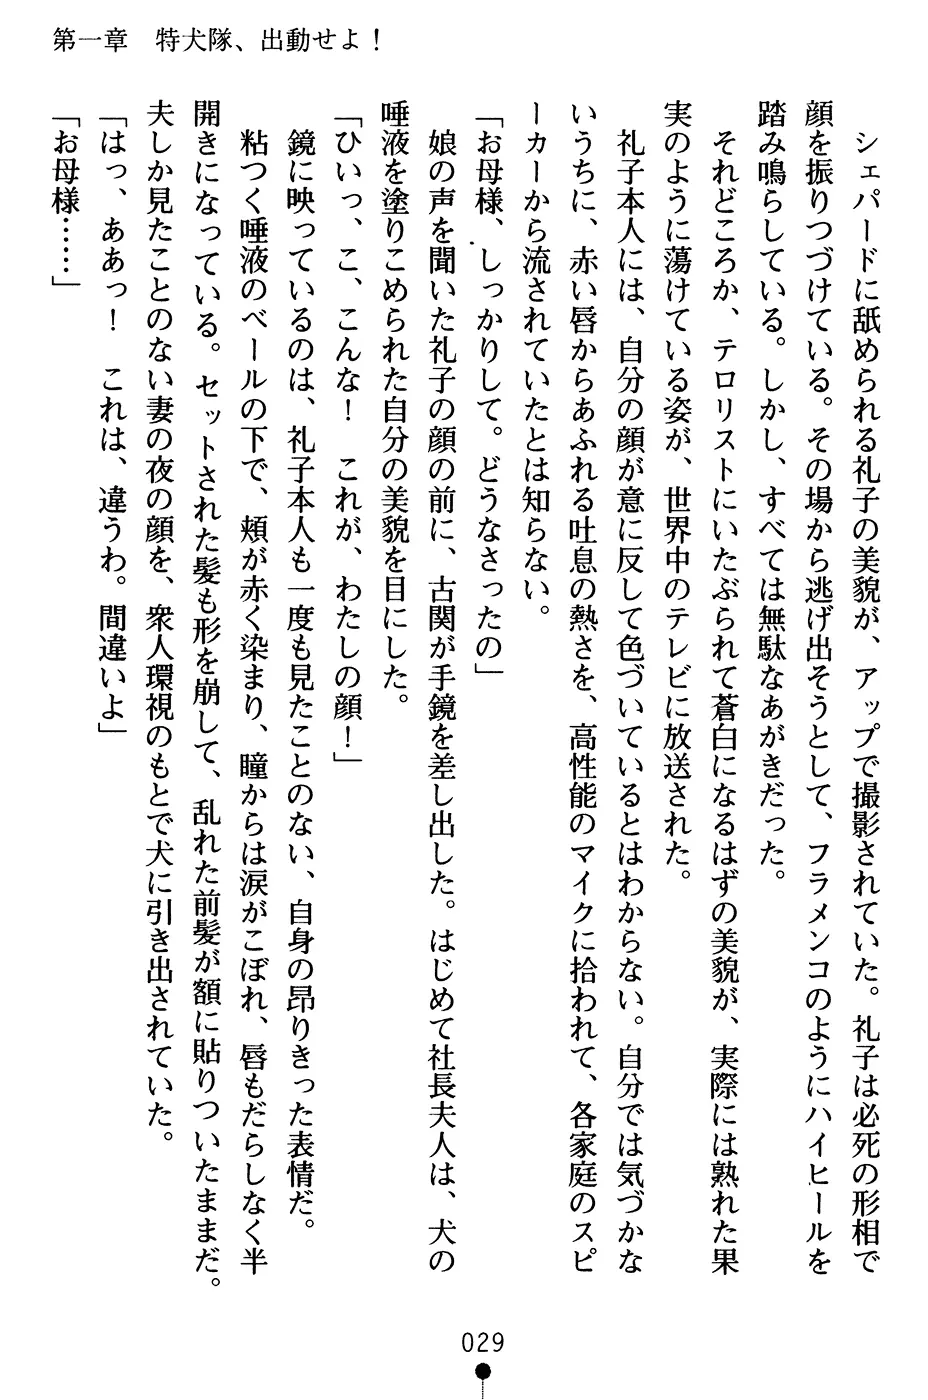 第一章　特犬隊、出動せよ！
　シェパードに舐められる礼子の美貌が、アップで撮影されていた。礼子は必死の形相で
顔を振りつづけている。その場から逃げ出そうとして、フラメンコのようにハイヒールを
踏み鳴らしている。しかし、すべては無駄なあがきだった。
　それどころか、テロリストにいたぶられて蒼白になるはずの美貌が、実際には熟れた果
実のように蕩けている姿が、世界中のテレビに放送された。
　礼子本人には、自分の顔が意に反して色づいているとはわからない。自分では気づかな
いうちに、赤い唇からあふれる吐息の熱さを、高性能のマイクに拾われて、各家庭のスピ
ーカーから流されていたとは知らない。
「お母様、しっかりして。どうなさったの」
　娘の声を聞いた礼子の顔の前に、古関が手鏡を差し出した。はじめて社長夫人は、犬の
唾液を塗りこめられた自分の美貌を目にした。
「ひいっ、こ、こんな！　これが、わたしの顔！」
　鏡に映っているのは、礼子本人も一度も見たことのない、自身の昂りきった表情だ。
　粘つく唾液のベールの下で、頬が赤く染まり、瞳からは涙がこぼれ、唇もだらしなく半
開きになっている。セットされた髪も形を崩して、乱れた前髪が額に貼りついたままだ。
夫しか見たことのない妻の夜の顔を、衆人環視のもとで犬に引き出されていた。
「はっ、ああっ！　これは、違うわ。間違いよ」
「お母様……」
029